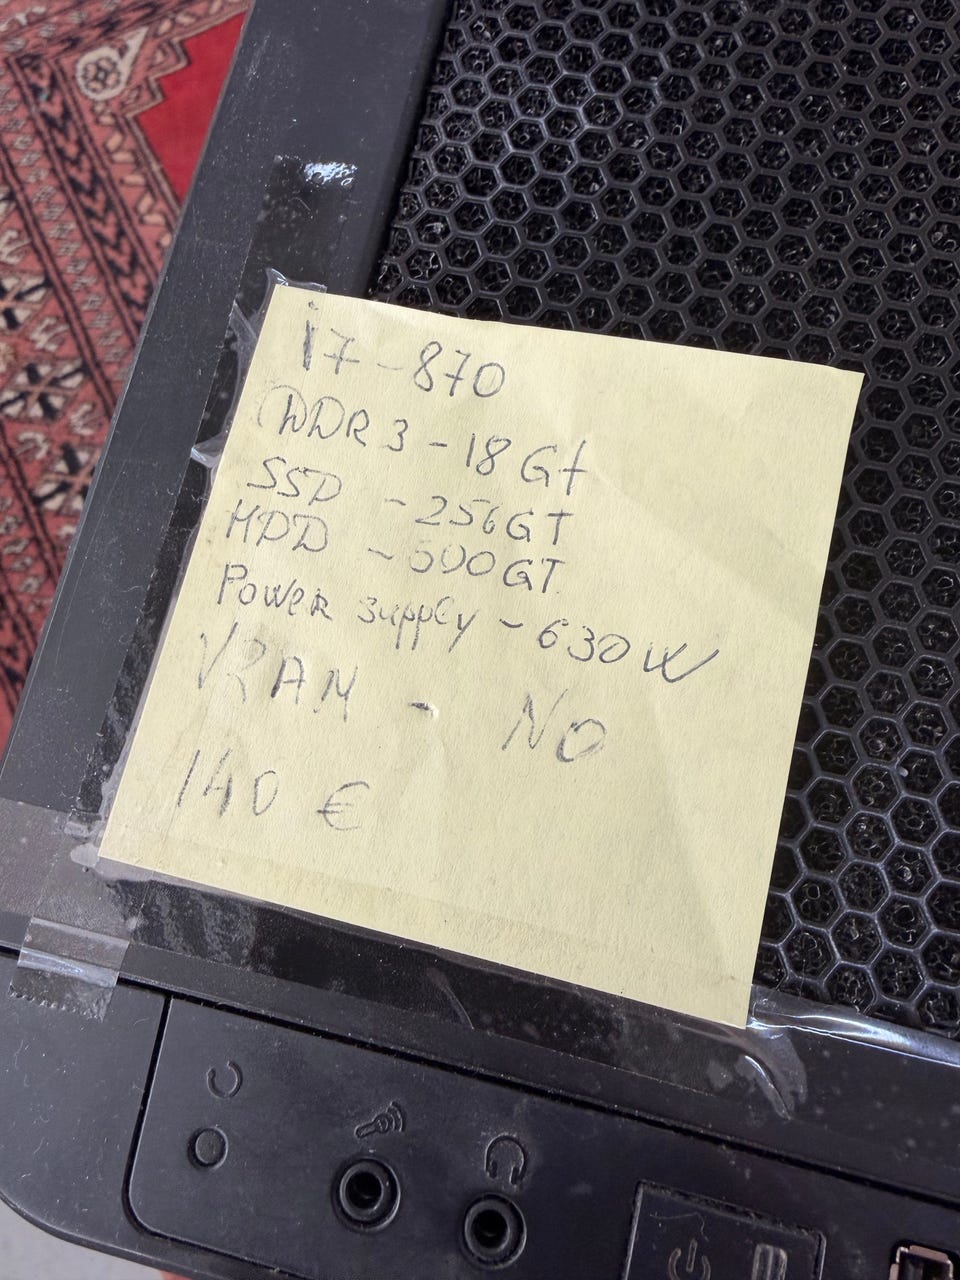 i7-870
DDR3 - 18Gt
SSD - 256GT
HDD - 500GT
Power supply - 630W
VRAM - NO
140 €